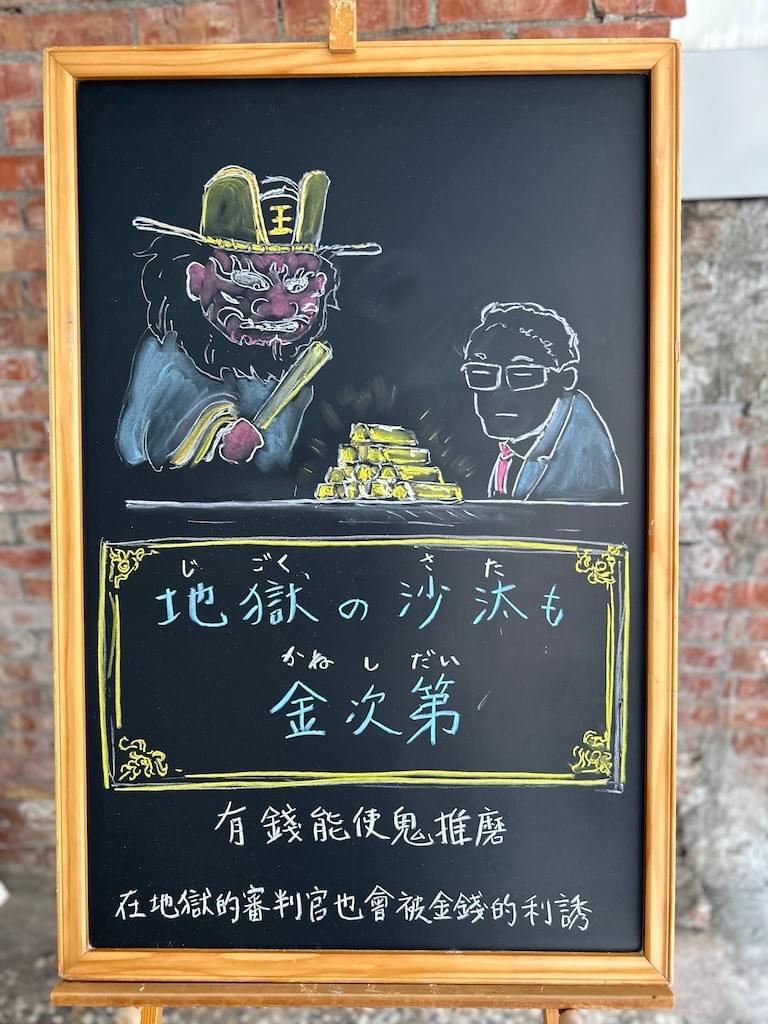 王
じごくさた
地獄の沙汰も
かねしだい
金次第
有錢能使鬼推磨
在地獄的審判官也會被金錢的利誘